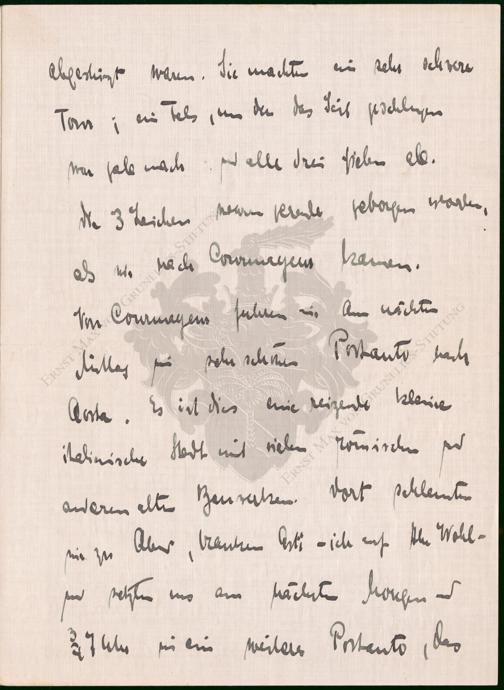 abgestürzt waren. Sie machten ein sehr schwere
Tour; ein Fels, um den das Seil geschlungen
war gab nach und alle drei fielen ab.
Die 3 Leichen waren gerade geborgen worden,
als wir nach Courmayeur kamen.
Von Courmayeur fuhren wir am nächsten
Mittag in sehr schönem Postauto nach
Aosta. Es ist dies eine reizende kleine
italienische Stadt mit vielen römischen und
anderen alten Bauwerken. Dort schlemmten
wir zu Abend, tranken Asti - ich auf Ihr Wohl -
und setzten uns am nächsten Morgen
3/4 7 Uhr in ein weiteres Postauto, das
ERNST MAX VON GRUNELIUS-STIFTUNG
ERNST MAX VON GRUNELIUS-STIFTUNG